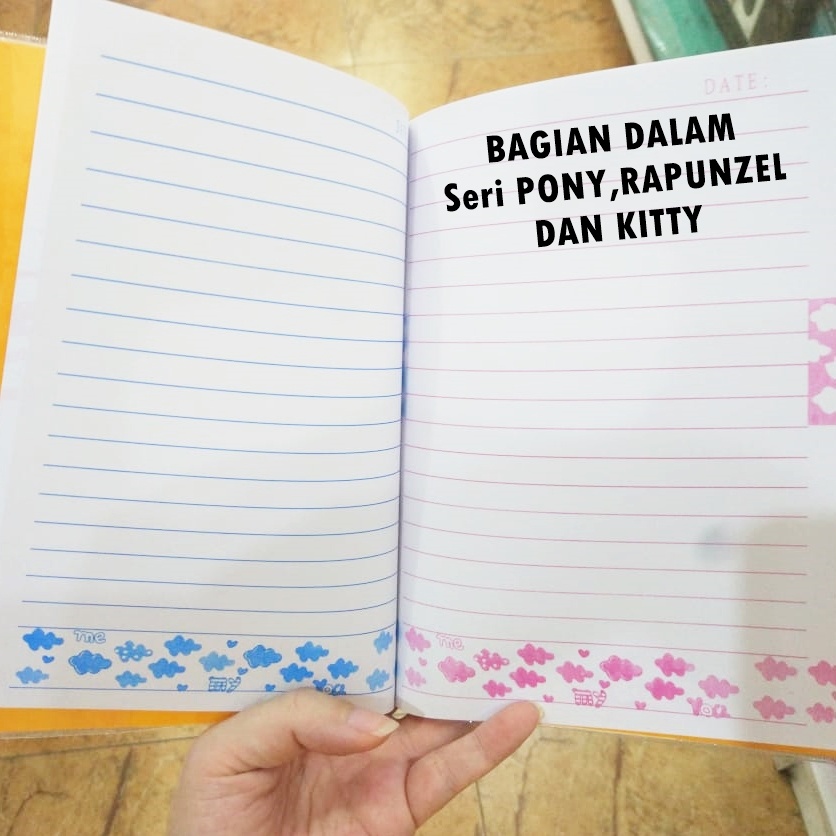 DATE:
BAGIAN DALAM
Seri PONY,RAPUNZEL
DAN KITTY
me
my
me
my